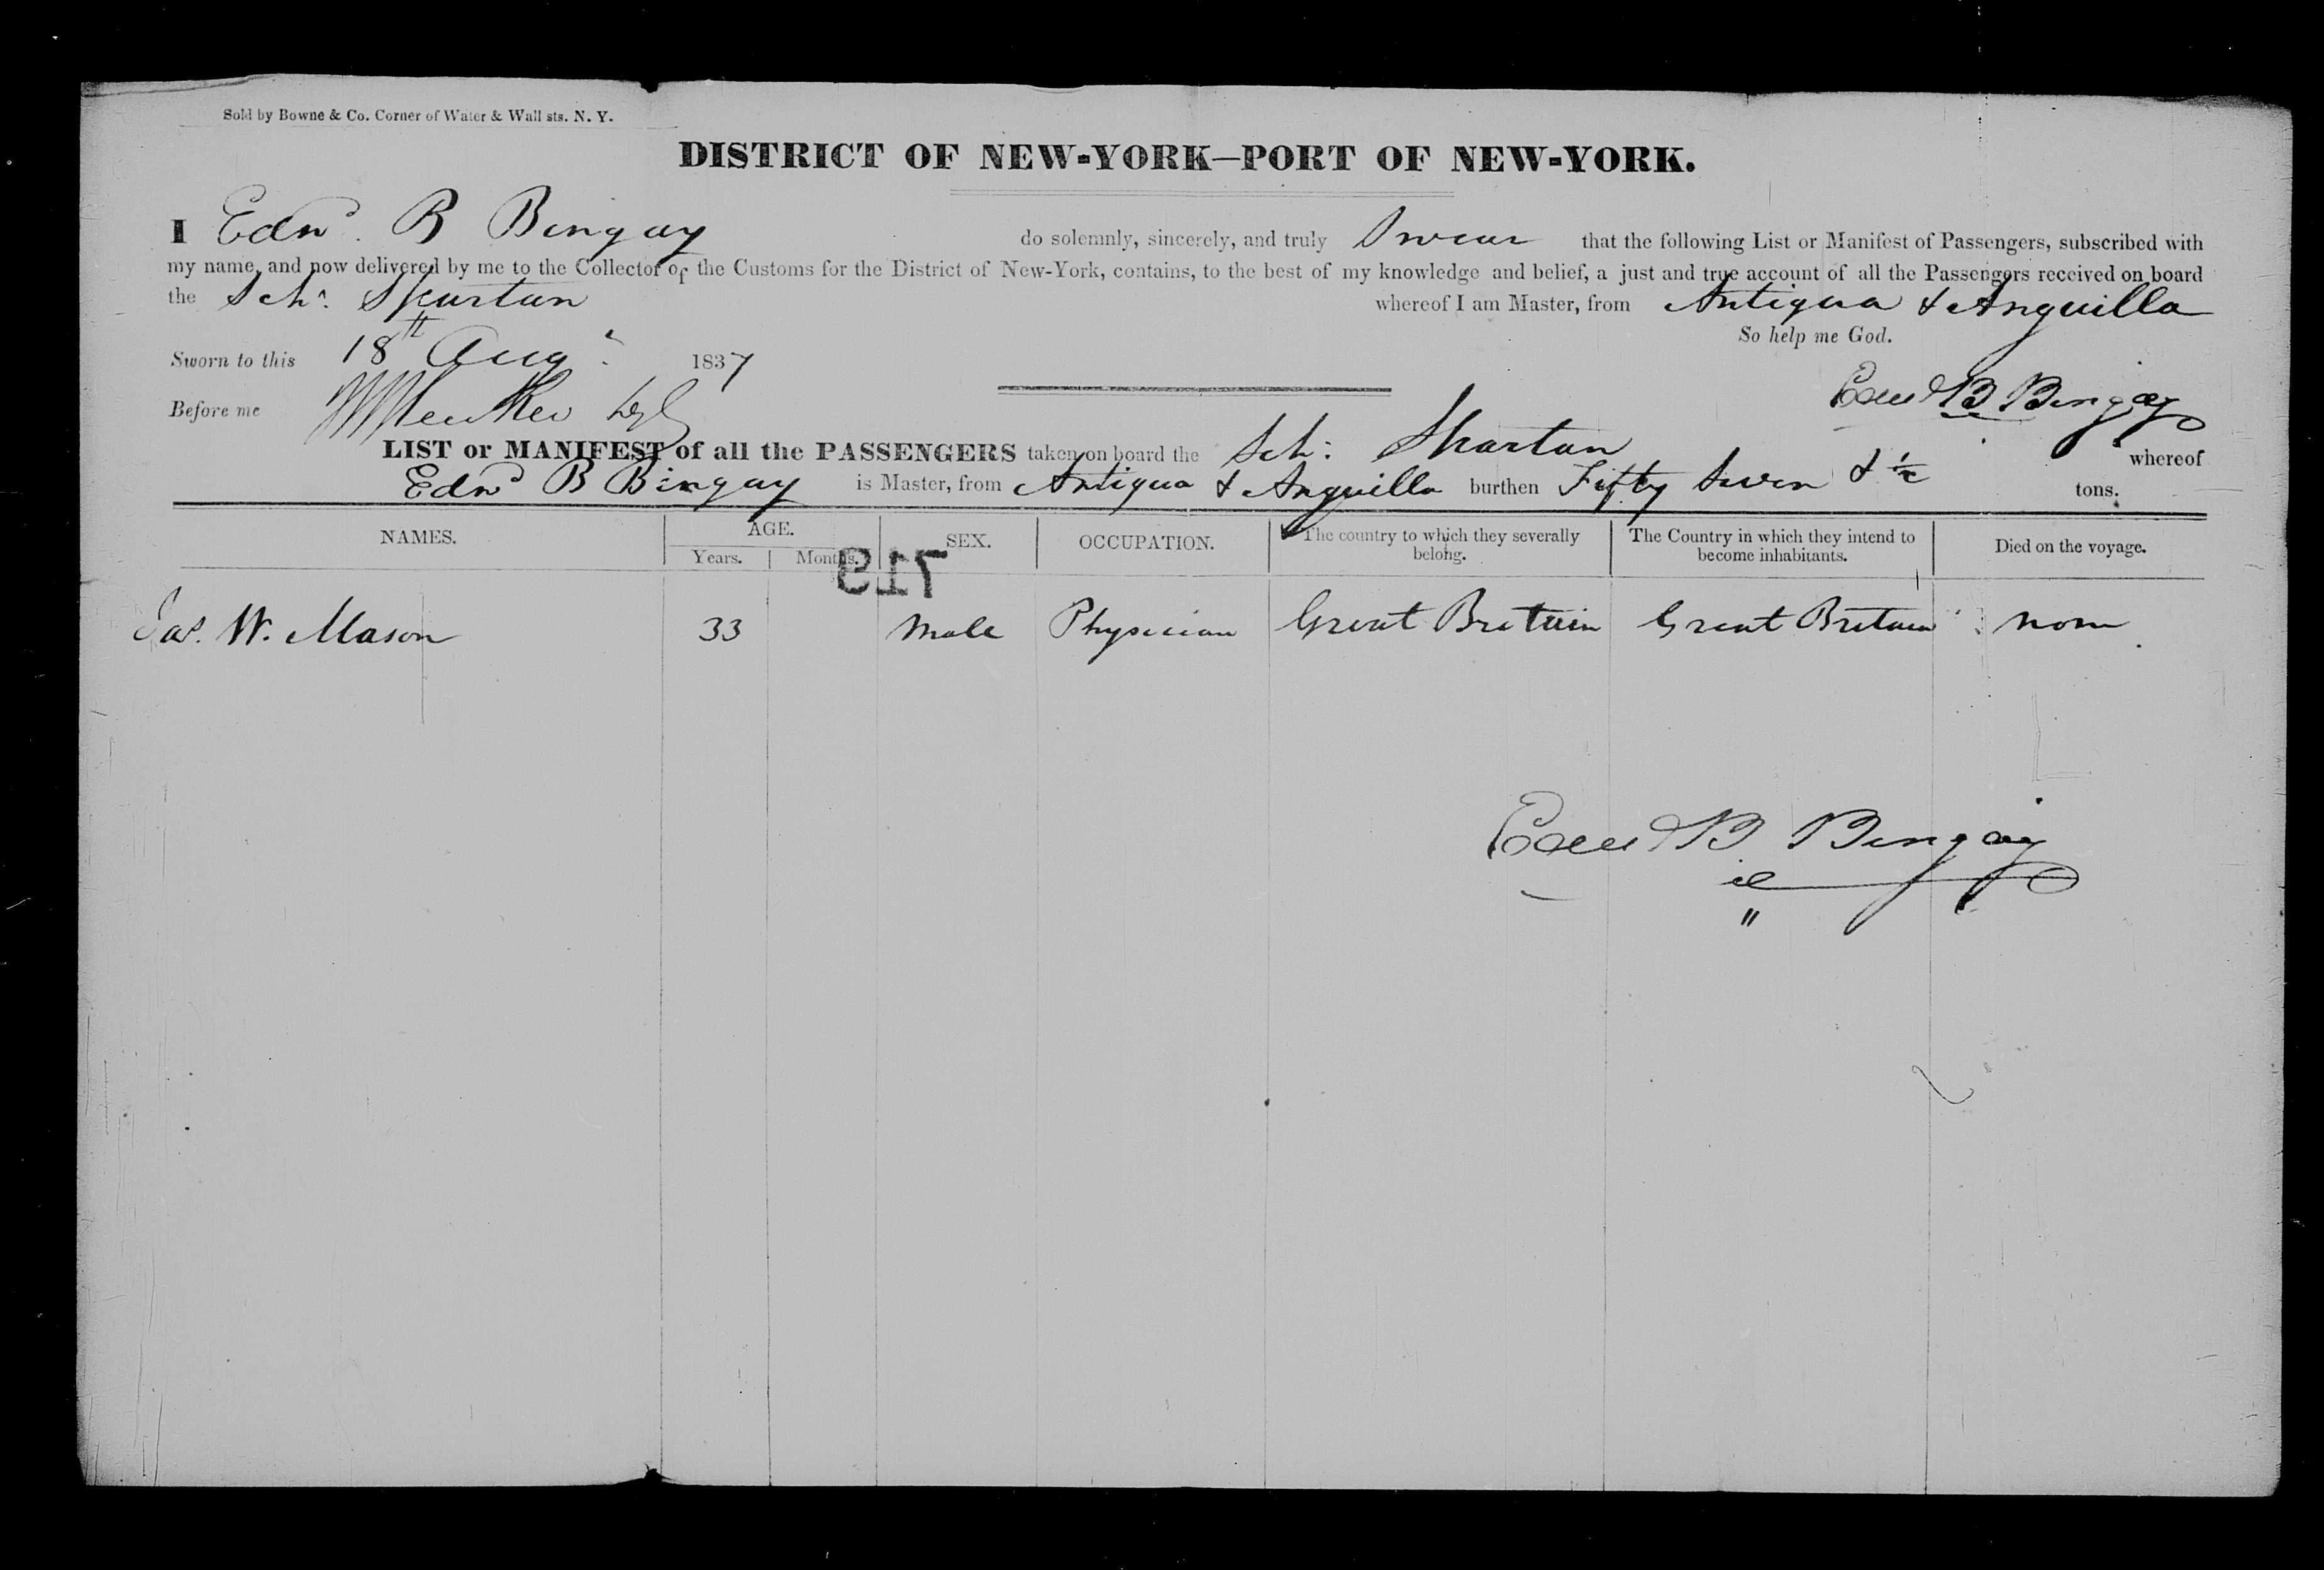 Sold by Bowne & Co. Corner of Water & Wall sts. N. Y.
DISTRICT OF NEW-YORK—PORT OF NEW-YORK.
I Edwd. B Bingay do solemnly, sincerely, and truly Swear that the following List or Manifest of Passengers, subscribed with
my name, and now delivered by me to the Collector of the Customs for the District of New-York, contains, to the best of my knowledge and belief, a just and true account of all the Passengers received on board
the Schr. Spartan whereof I am Master, from Antigua & Anguilla
So help me God.
Sworn to this 18th Augt. 1837
Edwd B Bingay
Before me
LIST or MANIFEST of all the PASSENGERS taken on board the Sch: Spartan whereof
Edwd B Bingay is Master, from Antigua & Anguilla burthen Fifty Seven & ½ tons.
NAMES. AGE. SEX. OCCUPATION. The country to which they severally belong. The Country in which they intend to become inhabitants. Died on the voyage.
Years. Months.
719
Jas. W. Mason 33 Male Physician Great Britain Great Britain none
Edwd B Bingay